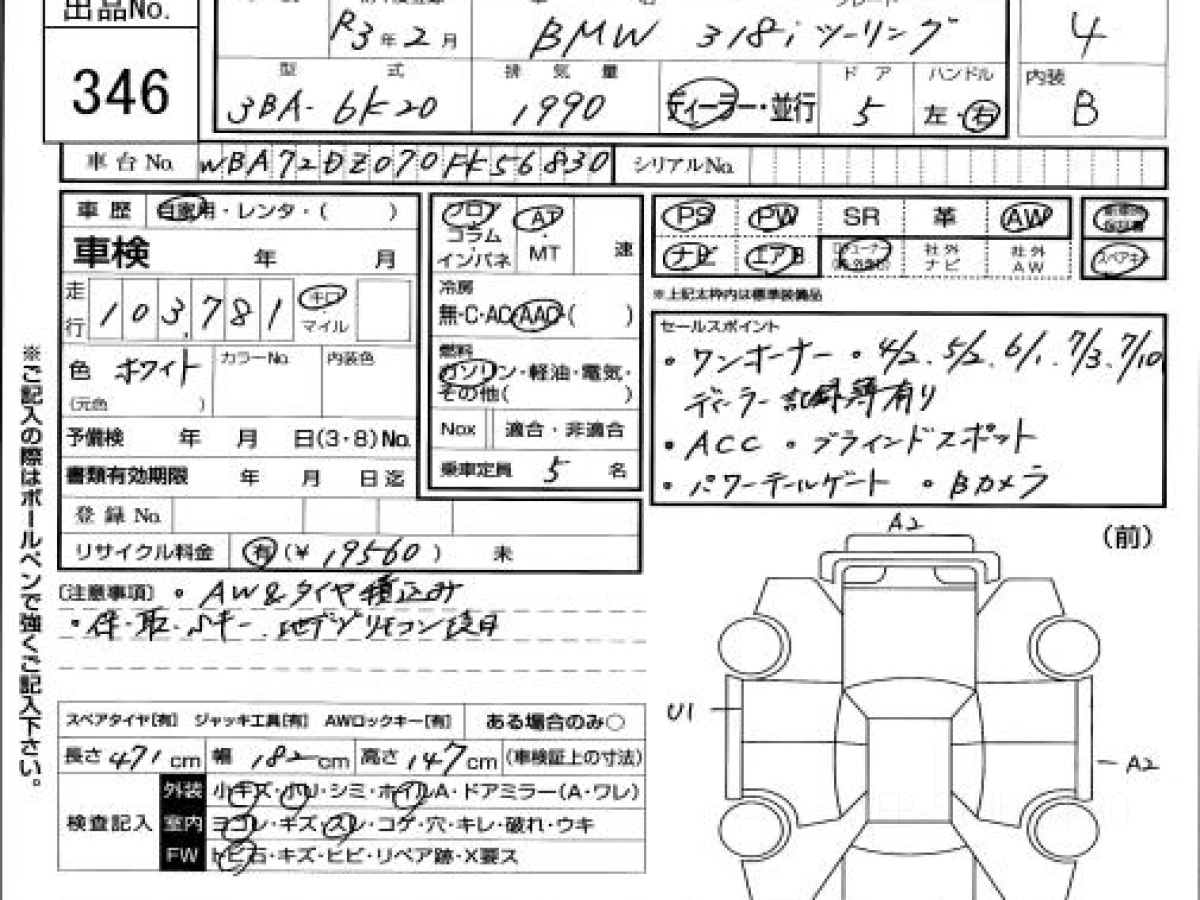 出品No.
346
R3年2月 BMW 318i ツーリング 4
型式 排気量 ドア ハンドル 内装
3BA-6K20 1990 ディーラー・並行 5 左・右 B
車台No. WBA72DZ070FK56830 シリアルNo.
車歴 自家用・レンタ・( )
車検 年 月
走行 103,781 キロ マイル
色 ホワイト カラーNo. 内装色
(元色 )
予備検 年 月 日(3・8)No.
書類有効期限 年 月 日迄
登録No.
リサイクル料金 有(¥ 19560 ) 未
フロア コラム インパネ AT MT 速
冷房
無・C・AC・AAC・( )
燃料
ガソリン・軽油・電気・
その他( )
Nox 適合・非適合
乗車定員 5 名
PS PW SR 革 AW
ナビ エアB 社外ナビ 社外AW スペアキー
※上記太枠内は標準装備品
セールスポイント
・ワンオーナー ・4/2、5/2、6/1、7/3、7/10
ディーラー記録簿有り
・ACC ・ブラインドスポット
・パワーテールゲート ・Bカメラ
[注意事項] ・AW&タイヤ積込み
・保・取・スペキー、地デジリモコン後日
スペアタイヤ[有] ジャッキ工具[有] AWロックキー[有] ある場合のみ○
長さ 471cm 幅 182cm 高さ 147cm (車検証上の寸法)
検査記入
外装 小キズ・小U・シミ・ホイルA・ドアミラー(A・ワレ)
室内 ヨゴレ・キズ・スレ・コゲ・穴・キレ・破れ・ウキ
FW トビ石・キズ・ヒビ・リペア跡・X要ス
※ご記入の際はボールペンで強くご記入下さい。
A2
(前)
U1
A2